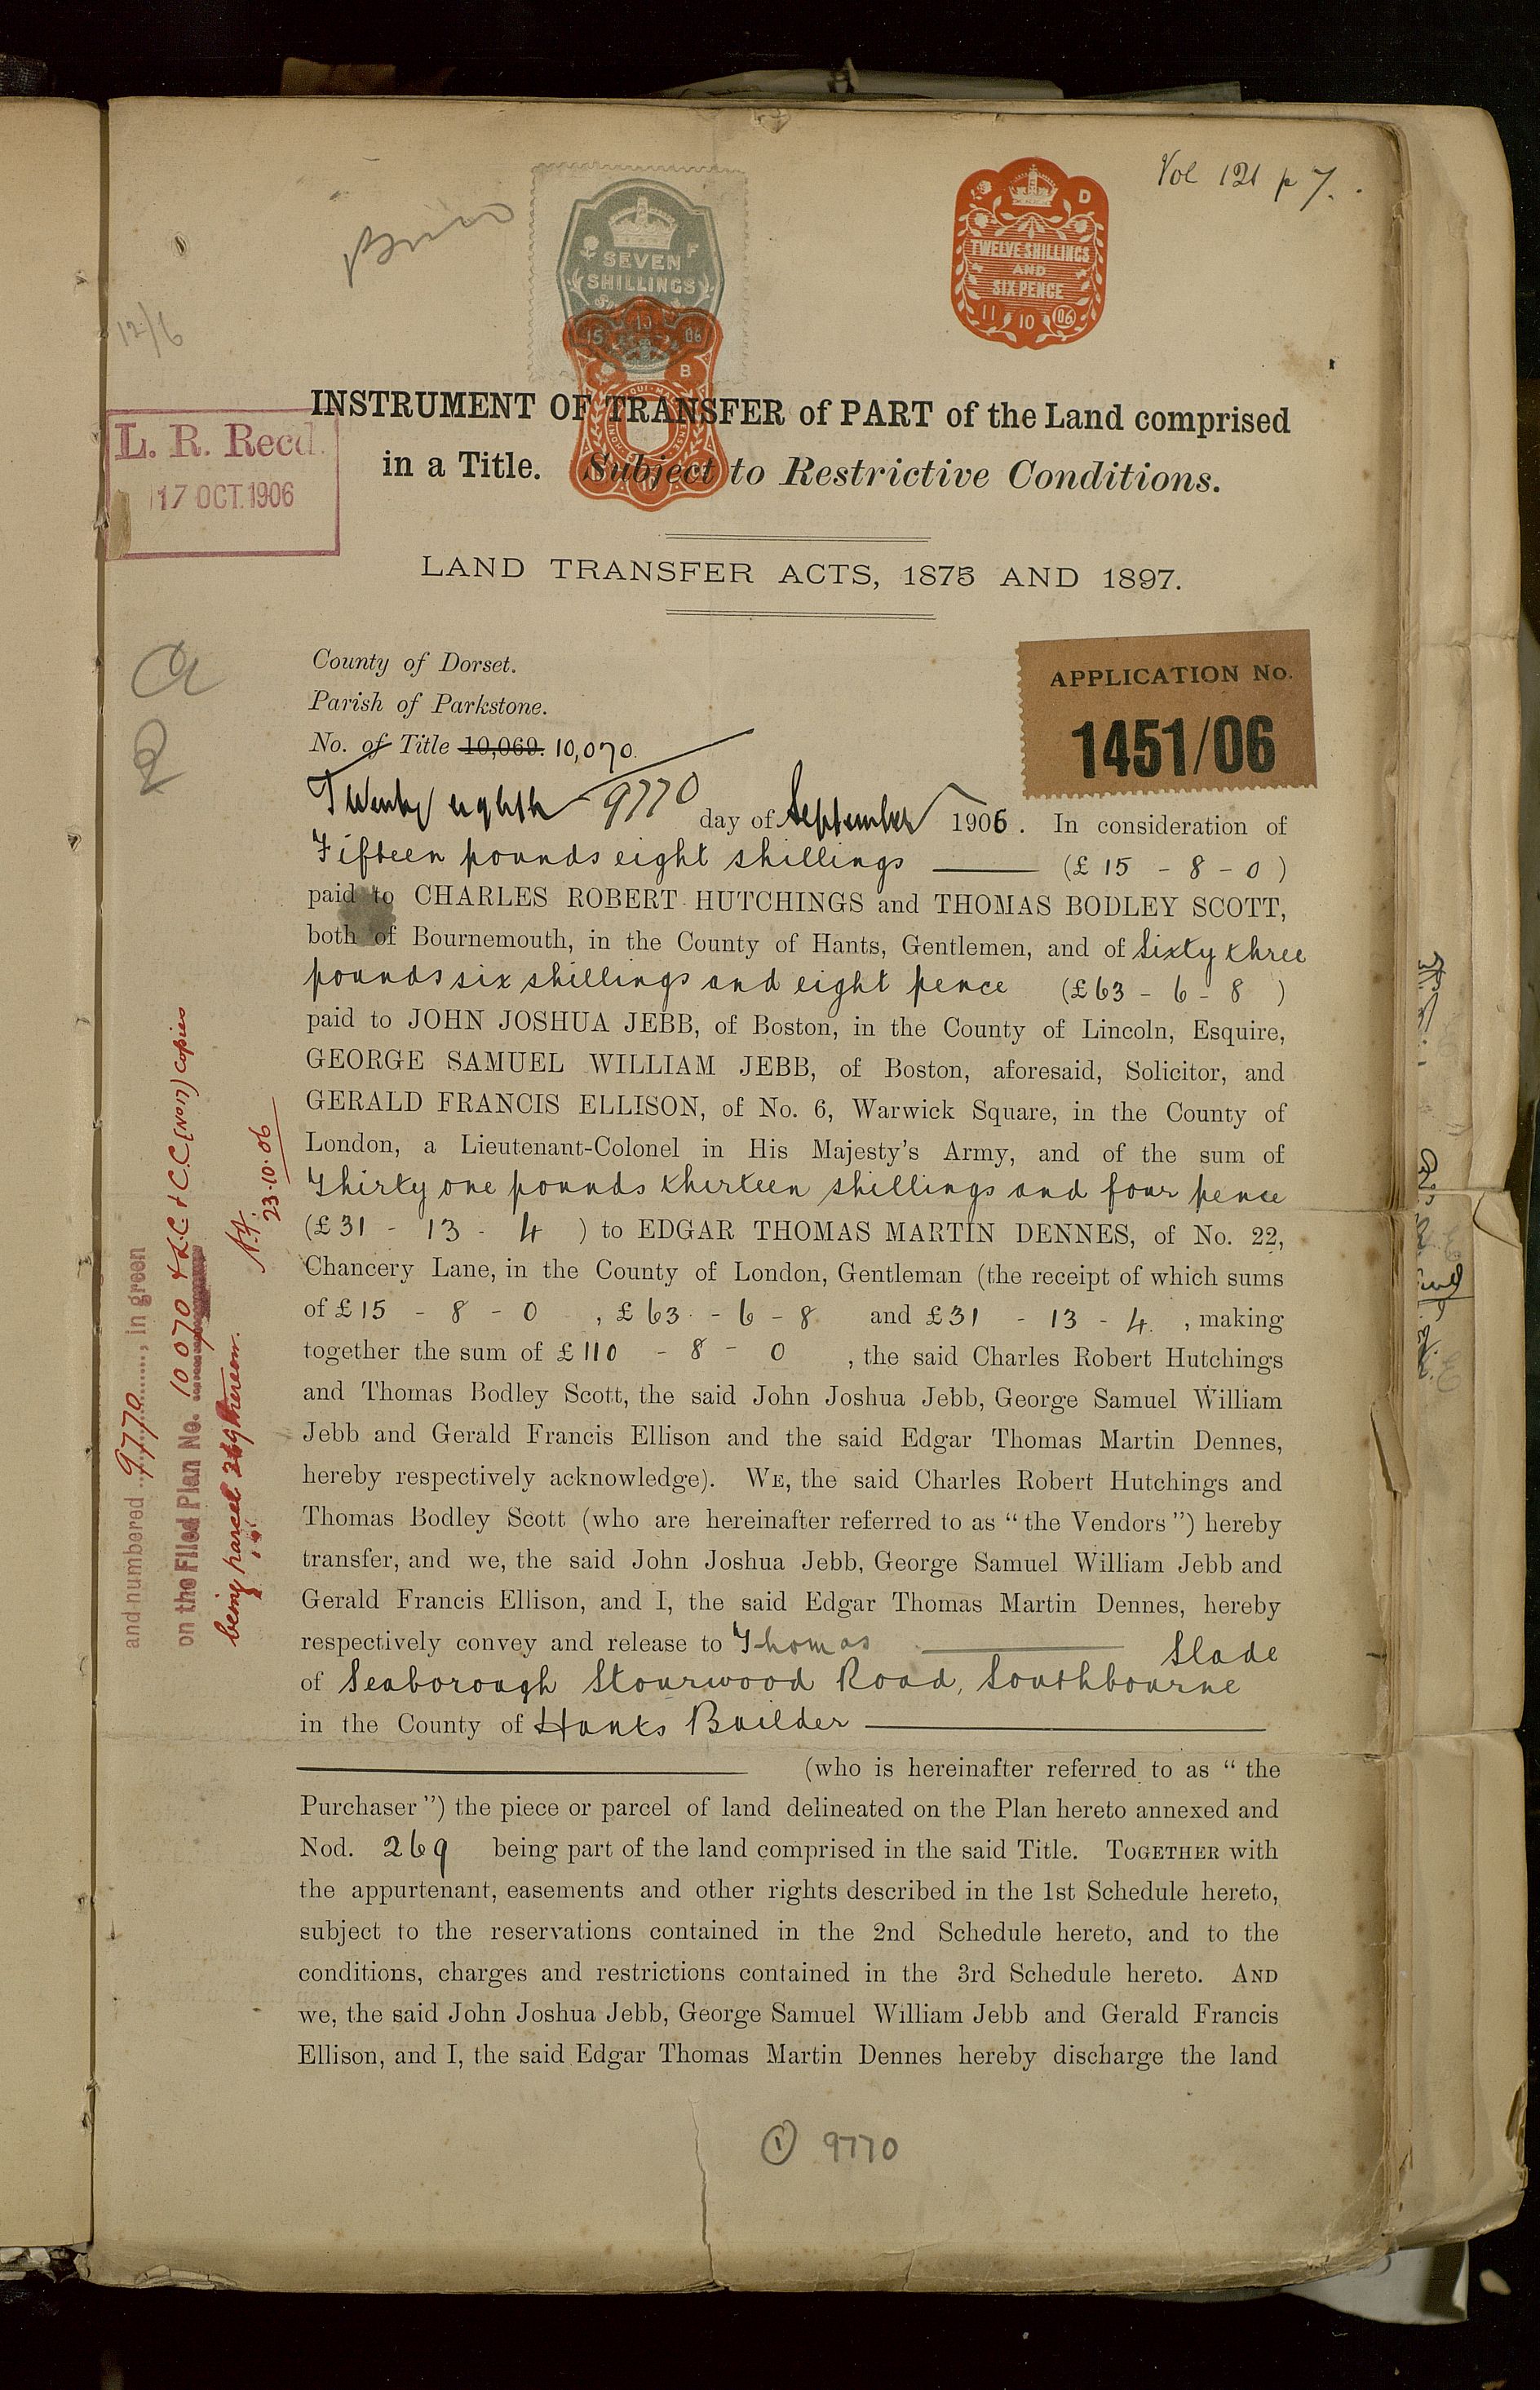 Vol 121 p 7.
SEVEN
SHILLINGS
TWELVE SHILLINGS
AND
SIX PENCE
11 10 06
D
F
15 10 06
B
12/6
INSTRUMENT OF TRANSFER of PART of the Land comprised
in a Title. Subject to Restrictive Conditions.
L. R. Recd.
17 OCT. 1906
LAND TRANSFER ACTS, 1875 AND 1897.
County of Dorset.
Parish of Parkstone.
No. of Title 10,069. 10,070.
APPLICATION No.
1451/06
9770
Twenty eighth day of September 1906. In consideration of
Fifteen pounds eight shillings (£ 15 - 8 - 0 )
paid to CHARLES ROBERT HUTCHINGS and THOMAS BODLEY SCOTT,
both of Bournemouth, in the County of Hants, Gentlemen, and of Sixty three
pounds six shillings and eight pence (£ 63 - 6 - 8 )
paid to JOHN JOSHUA JEBB, of Boston, in the County of Lincoln, Esquire,
GEORGE SAMUEL WILLIAM JEBB, of Boston, aforesaid, Solicitor, and
GERALD FRANCIS ELLISON, of No. 6, Warwick Square, in the County of
London, a Lieutenant-Colonel in His Majesty's Army, and of the sum of
Thirty one pounds thirteen shillings and four pence
(£ 31 - 13 - 4 ) to EDGAR THOMAS MARTIN DENNES, of No. 22,
Chancery Lane, in the County of London, Gentleman (the receipt of which sums
of £ 15 - 8 - 0 , £ 63 - 6 - 8 and £ 31 - 13 - 4 , making
together the sum of £ 110 - 8 - 0 , the said Charles Robert Hutchings
and Thomas Bodley Scott, the said John Joshua Jebb, George Samuel William
Jebb and Gerald Francis Ellison and the said Edgar Thomas Martin Dennes,
hereby respectively acknowledge). WE, the said Charles Robert Hutchings and
Thomas Bodley Scott (who are hereinafter referred to as “ the Vendors ”) hereby
transfer, and we, the said John Joshua Jebb, George Samuel William Jebb and
Gerald Francis Ellison, and I, the said Edgar Thomas Martin Dennes, hereby
respectively convey and release to Thomas Slade
of Seaborough Stourwood Road, Southbourne
in the County of Hants Builder
(who is hereinafter referred to as “ the
Purchaser ”) the piece or parcel of land delineated on the Plan hereto annexed and
Nod. 269 being part of the land comprised in the said Title. TOGETHER with
the appurtenant, easements and other rights described in the 1st Schedule hereto,
subject to the reservations contained in the 2nd Schedule hereto, and to the
conditions, charges and restrictions contained in the 3rd Schedule hereto. AND
we, the said John Joshua Jebb, George Samuel William Jebb and Gerald Francis
Ellison, and I, the said Edgar Thomas Martin Dennes hereby discharge the land
1 9770
and numbered 9770, in green
on the Filed Plan No. 10070 & L.C & C.C copies
being parcel 269 thereon.
23.10.06